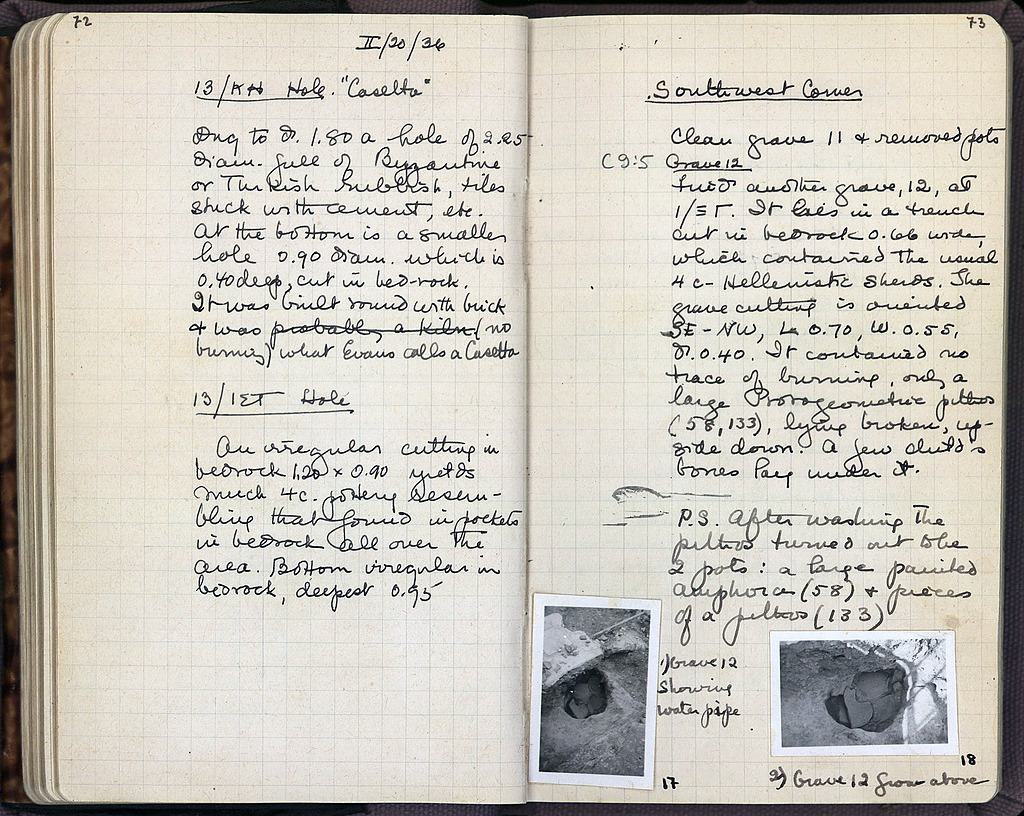 72
II/20/36
13/KH Hole. "Caselta"
Dug to D. 1.80 a hole of 2.25
Diam. full of Byzantine
or Turkish rubbish, tiles
stuck with cement, etc.
At the bottom is a smaller
hole 0.90 Diam. which is
0.40 deep, cut in bed-rock.
It was built round with brick
& was probably a kiln (no
burning) what Evans calls a Caselta
13/ΙΣΤ Hole
An irregular cutting in
bedrock 1.20 x 0.90 yields
much 4c. pottery resem-
bling that found in pockets
in bedrock all over the
area. Bottom irregular in
bedrock, deepest 0.95
73
Southwest Corner
Clean grave 11 & removed pots
C 9:5 Grave 12
Find another grave, 12, at
1/ΞΓ. It lies in a trench
cut in bedrock 0.66 wide,
which contained the usual
4c - Hellenistic sherds. The
grave cutting is oriented
SE-NW, L 0.70, W. 0.55,
D. 0.40. It contained no
trace of burning, only a
large Protogeometric pithos
(58, 133), lying broken, up-
side down. A few child's
bones lay under it.
P.S. After washing the
pithos turned out to be
2 pots: a large painted
amphora (58) & pieces
of a pithos (133)
1) Grave 12
showing
water pipe
17
18
2) Grave 12 from above